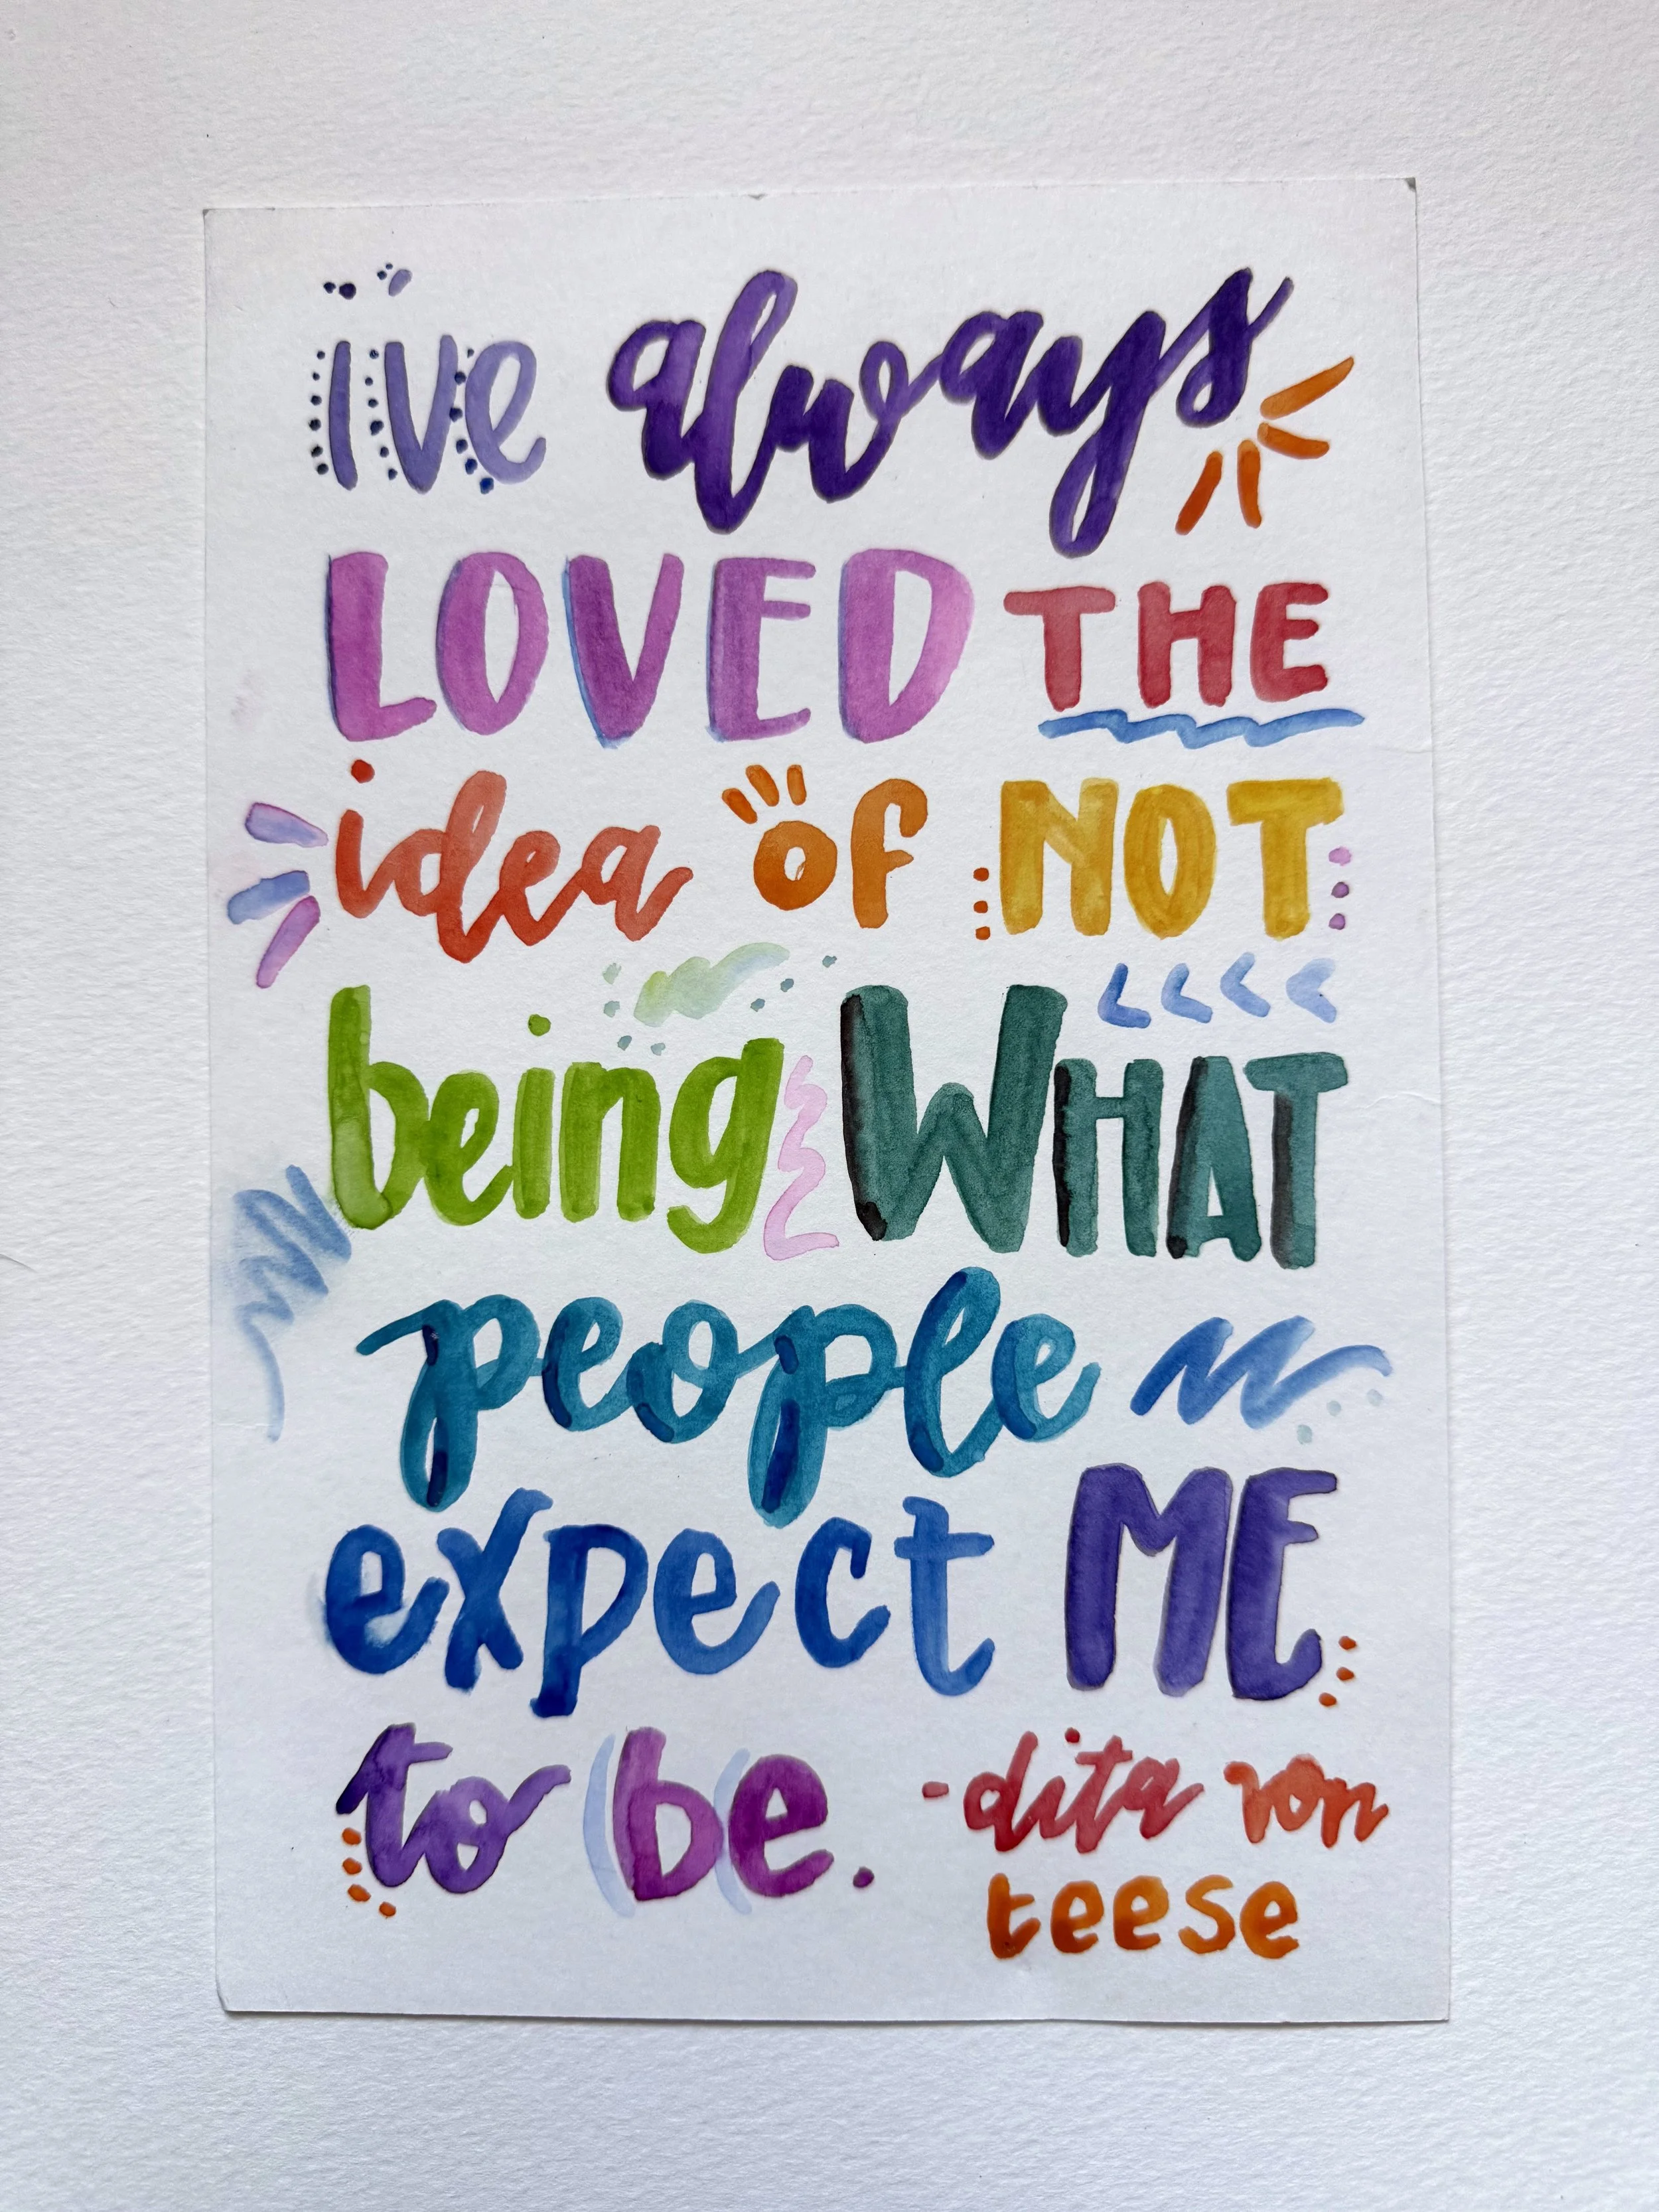 i've always
LOVED THE
idea of NOT
being WHAT
people
expect ME
to be. -dita von
teese